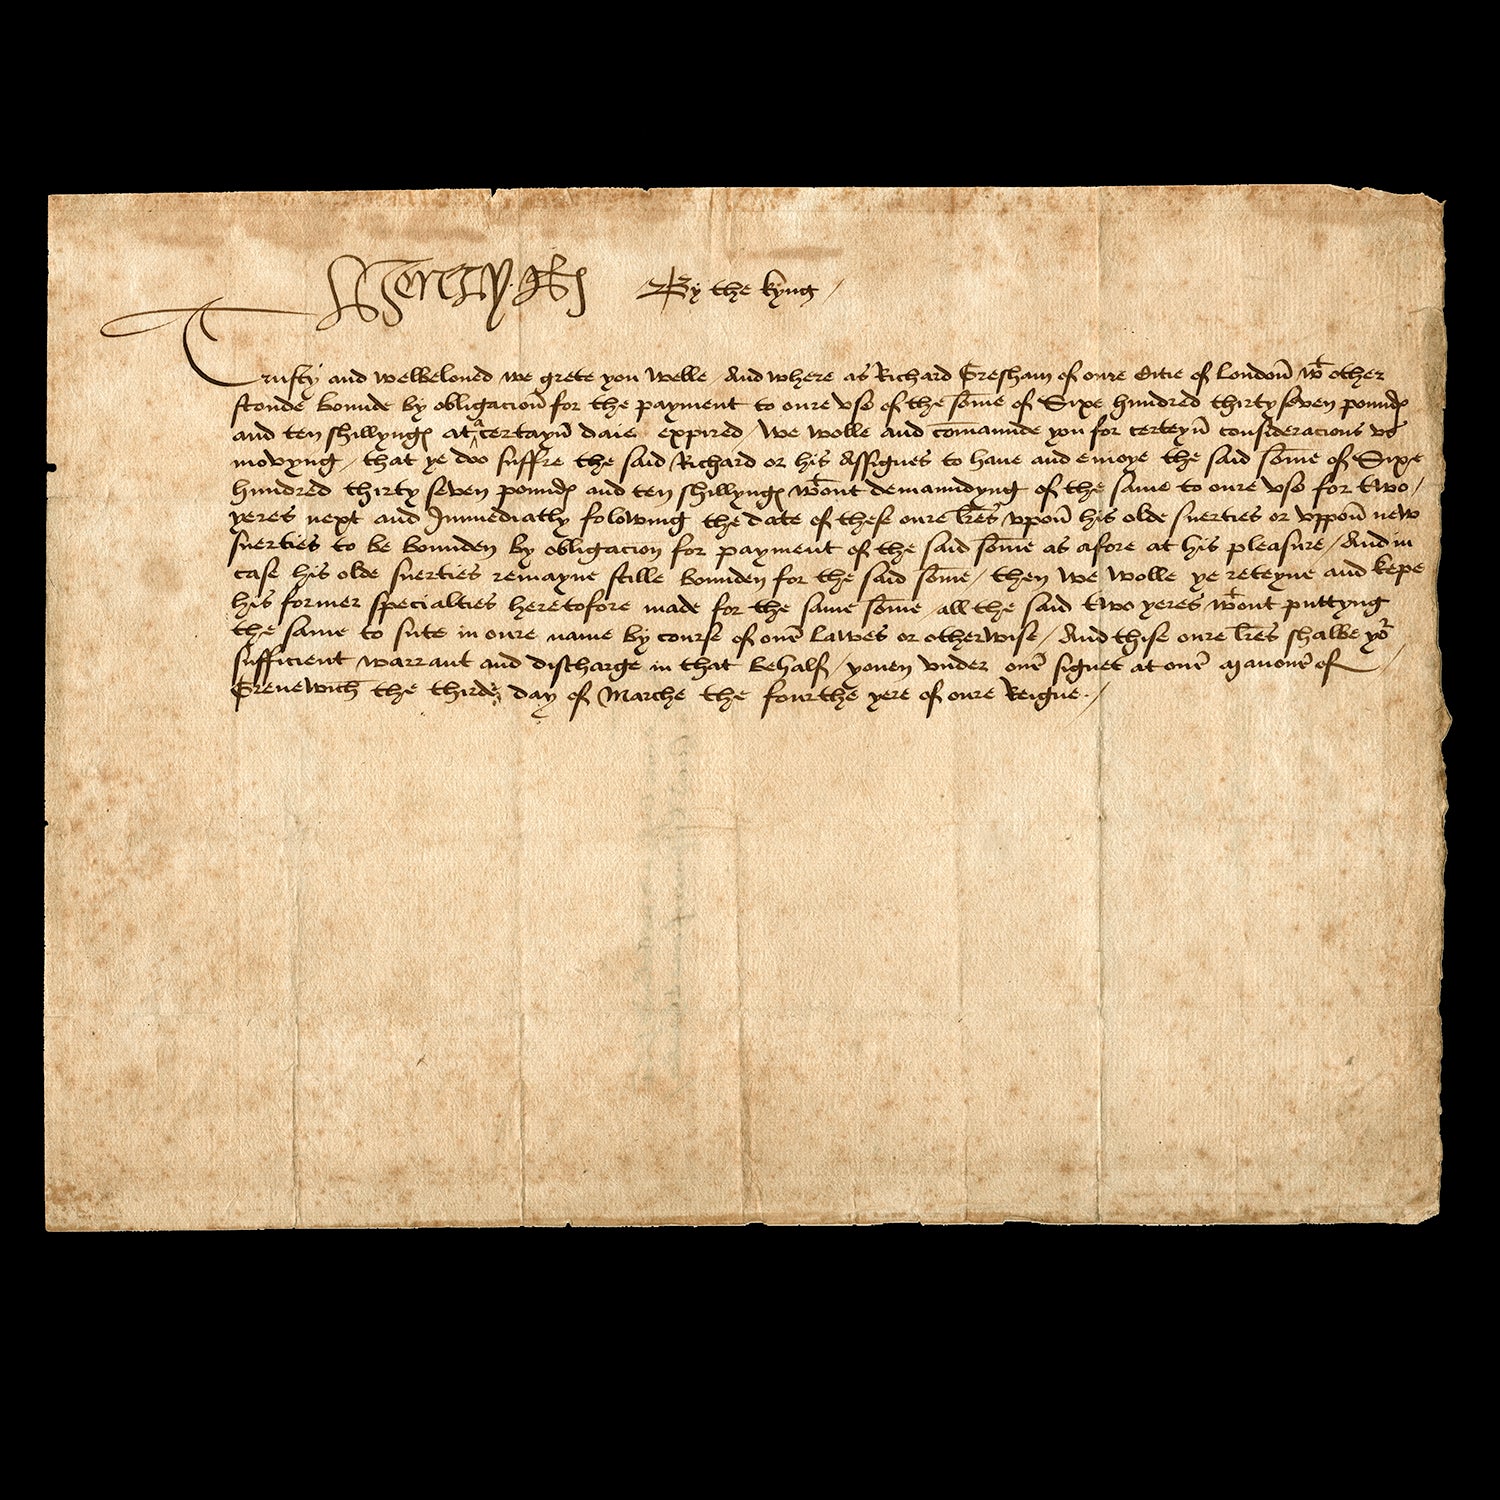 Henry R By the kyng /
Trusty and welbeloued we grete you welle / And where as Richard Gresham of oure Citie of London wt other
stonde bounde by obligacion for the payment to oure vse of the some of Sixe hundred thirty seven pound
and ten shillyng at a certayn daie expired / we wolle and comaunde you for certeyn consideracions vs
movyng / that ye doo suffre the said Richard or his Assignes to haue and enioye the said some of Sixe
hundred thirty seven pound and ten shillyng wtout demaundyng of the same to oure vse for two /
yeres next and Immediatly folowing the date of these oure lres vpon his olde suerties or vppon new
suerties to be bounden by obligacion for payment of the said some as afore at his pleasure / And in
case his olde suerties remayne stille bounden for the said some / then we wolle ye reteyne and kepe
his former specialties heretofore made for the same some all the said two yeres wtout puttyng
the same to sute in oure name by course of oure lawes or otherwise / And thise oure lres shalbe yor
sufficient warrant and discharge in that behalf / youen vnder oure signet at oure manoure of /
Grenewich the thirde day of Marche the fourthe yere of oure Reigne . /